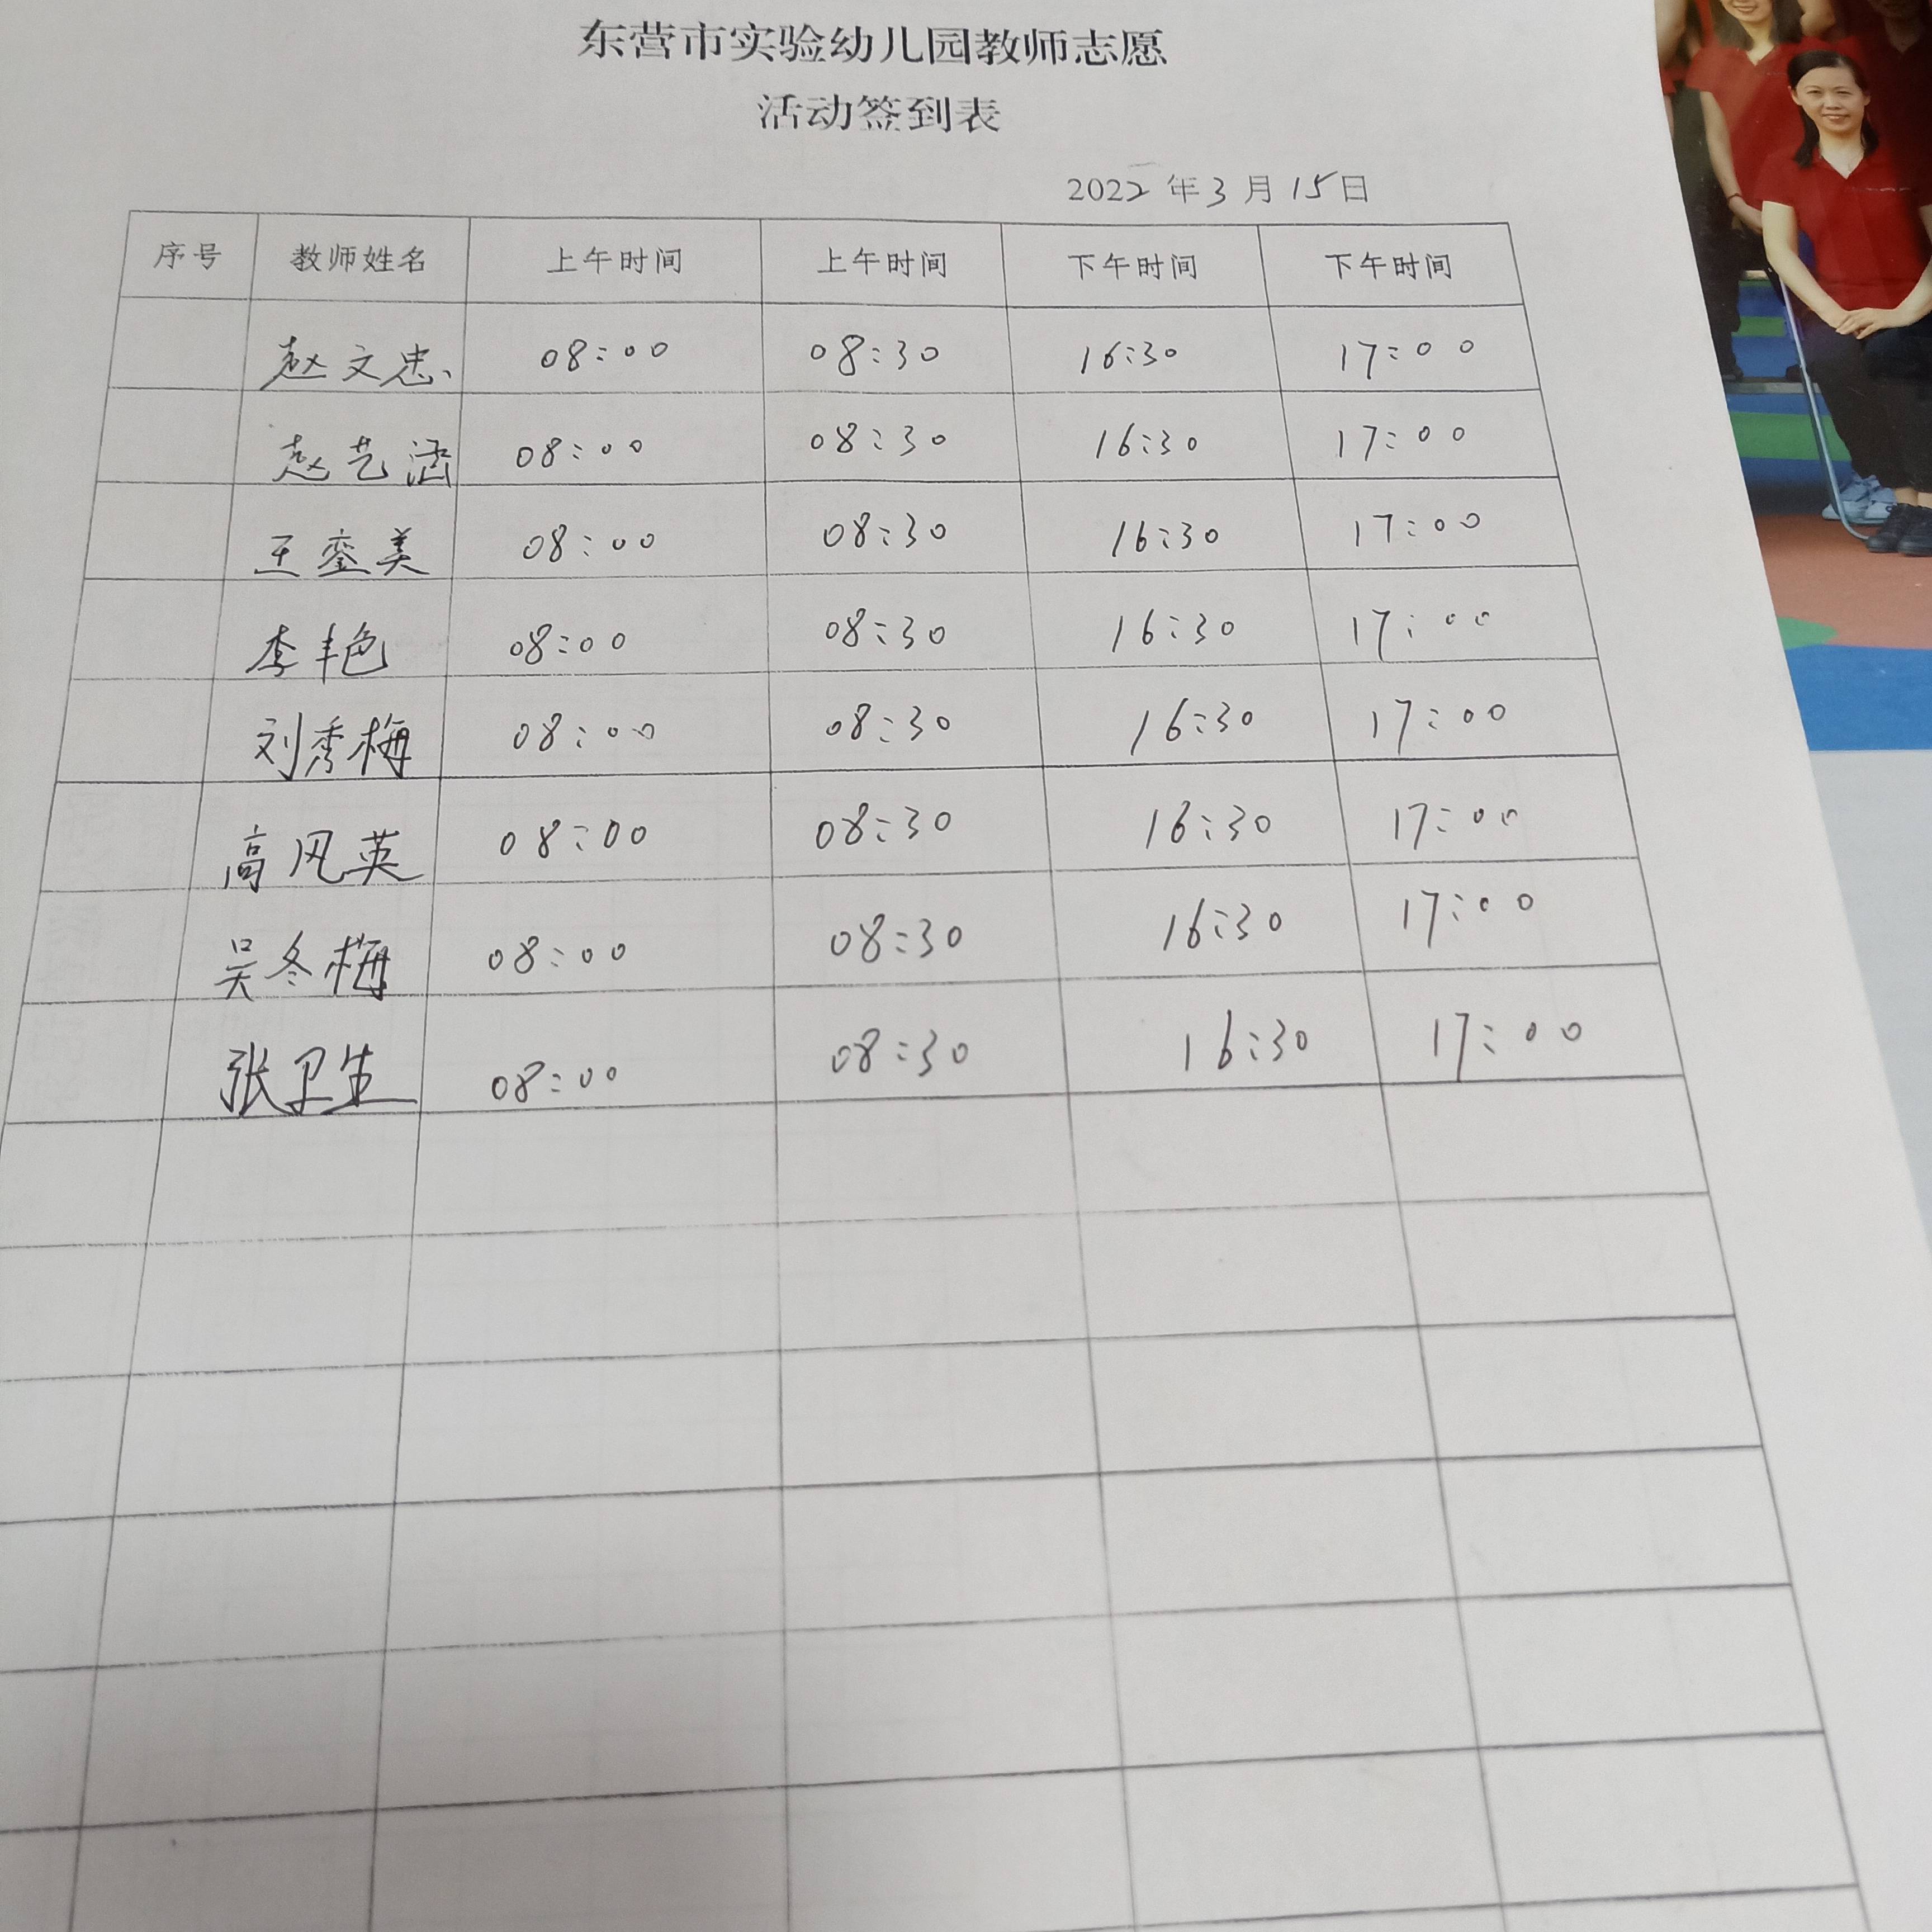 东营市实验幼儿园教师志愿
活动签到表
2022 年 3 月 15 日
序号 教师姓名 上午时间 上午时间 下午时间 下午时间
赵文忠 08:00 08:30 16:30 17:00
赵艺涵 08:00 08:30 16:30 17:00
王銮美 08:00 08:30 16:30 17:00
李艳 08:00 08:30 16:30 17:00
刘秀梅 08:00 08:30 16:30 17:00
高风英 08:00 08:30 16:30 17:00
吴冬梅 08:00 08:30 16:30 17:00
张卫生 08:00 08:30 16:30 17:00